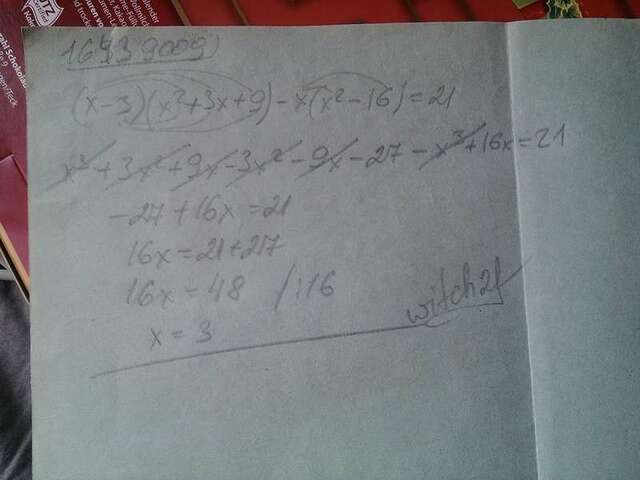 16439009)
(x-3)(x²+3x+9)-x(x²-16)=21
x³+3x²+9x-3x²-9x-27-x³+16x=21
-27+16x=21
16x=21+27
16x=48 /:16
x=3
witch2f